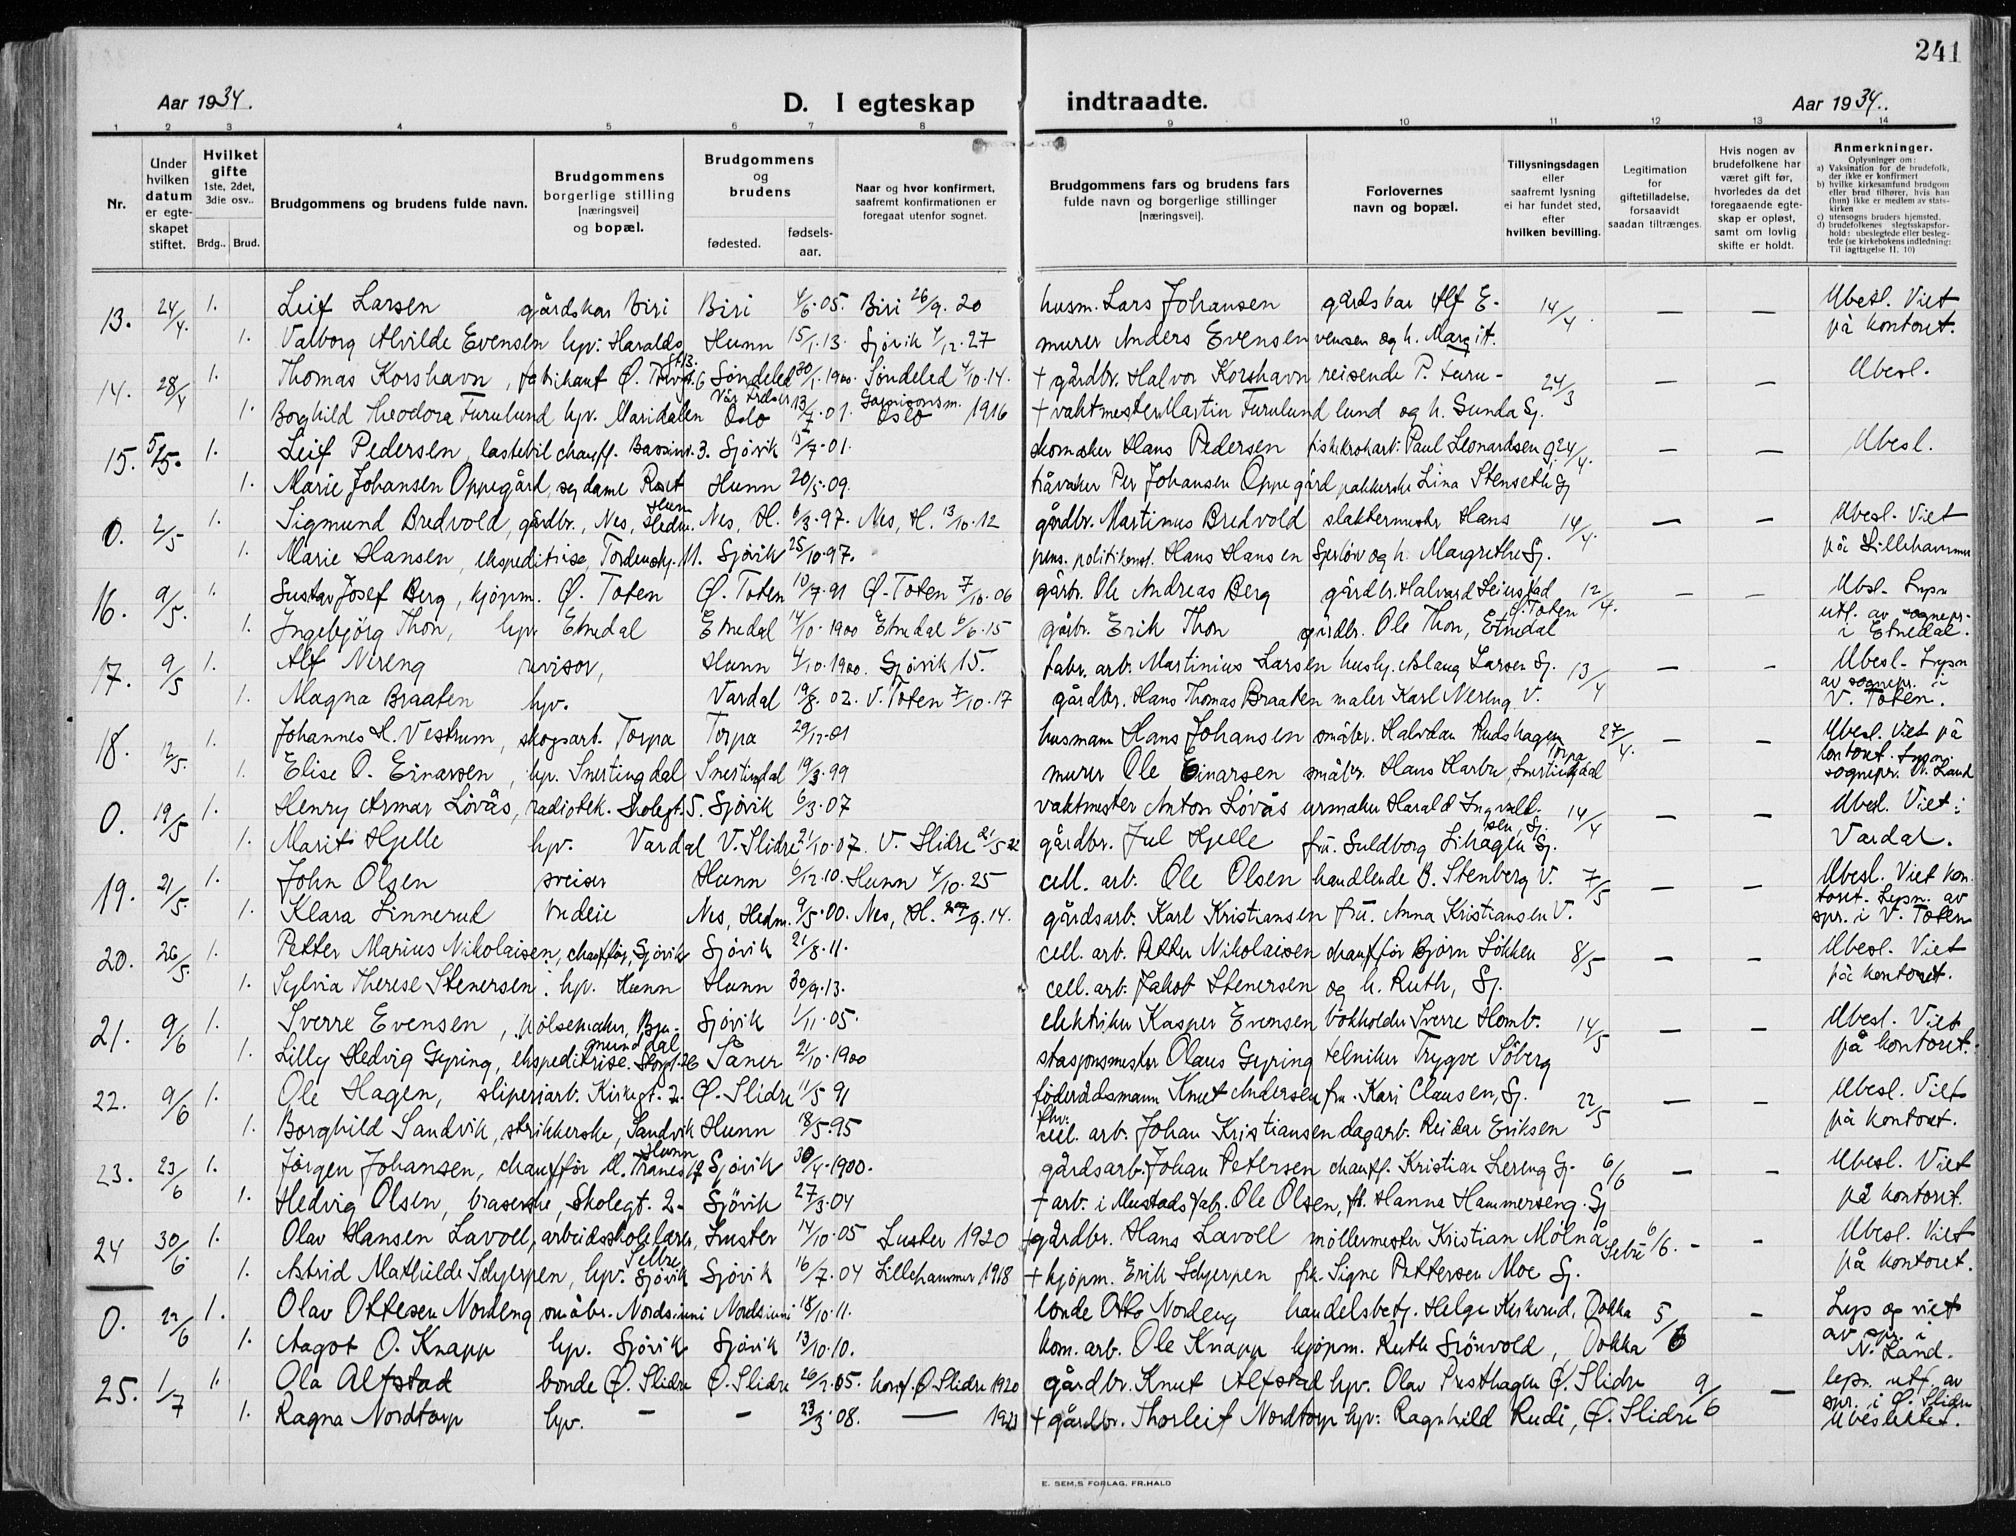 241
Aar 1934.
D. I egteskap indtraadte.
Aar 1934.
1 2 3 4 5 6 7 8 9 10 11 12 13 14
Nr.
Under hvilken datum er egte- skapet stiftet.
Hvilket gifte 1ste, 2det, 3die osv..
Brdg.. Brud.
Brudgommens og brudens fulde navn.
Brudgommens borgerlige stilling [næringsvei] og bopæl.
Brudgommens og brudens
fødested.
fødsels- aar.
Naar og hvor konfirmert, saafremt konfirmationen er foregaat utenfor sognet.
Brudgommens fars og brudens fars fulde navn og borgerlige stillinger [næringsvei].
Forlovernes navn og bopæl.
Tillysningsdagen eller saafremt lysning ei har fundet sted, efter hvilken bevilling.
Legitimation for giftetilladelse, forsaavidt saadan tiltrænges.
Hvis nogen av brudefolkene har været gift før, hvorledes da det foregaaende egte- skap er opløst, samt om lovlig skifte er holdt.
Anmerkninger.
Oplysninger om:
a) Vaksination for de brudefolk, der ikke er konfirmert
b) hvilke kirkesamfund brudgom eller brud tilhører, hvis han (hun) ikke er medlem av stats- kirken
c) utensogns bruders hjemsted.
d) brudefolkenes slegtsskapsfor- hold: ubeslegtede eller besleg- tede (se kirkebokens indledning: Til iagttagelse II. 10)
13. 24/4. 1. Leif Larsen gårdskar Biri Biri 4/6.05. Biri 26/9.20 husm. Lars Johansen gårdskar Alf E- 14/4. — — Ubesl. Viet
1. Valborg Alvilde Evensen hpv. Haralds Hunn 15/1.13. Gjøvik 4/12.27 murer Anders Evensen vensen og h. Margit. på kontoret.
14. 28/4 1. Thomas Korshavn, fabrikant Ø. Torvgt. 6 Søndeled 20/1.1900. Søndeled 4/10.14. + gårdbr. Halvor Korshavn reisende P. Furu- 24/3 — — Ubesl.
1. Borghild Theodora Furulund hpv. Maridalen Vår Frelser Oslo 13/7.01. Garnisonsm. Oslo 1916 + vaktmester Martin Furulund lund og h. Gunda Gj.
15. 5/5. 1. Leif Pedersen, lastebilchauff. Bassinv. 3. Gjøvik 15/7.01. skomaker Hans Pedersen fiskekrokarb. Paul Leonardsen Gj. 24/4. — — Ubesl.
1. Marie Johansen Oppegård, sydame Roset Hunn Hunn 20/5.09. Per Johansen Oppegård pakkerske Lina Stenseth Gj
0. 2/5 1. Sigmund Bredvold, gårdbr., Nes, Hedm. Nes, H. 6/3.97. Nes, H. 13/10.12 gårdbr. Martinus Bredvold slaktermester Hans 14/4. — — Ubesl. Viet
1. Marie Hansen, ekspeditrise, Tordenskj. 11. Gjøvik 25/10.97. pens. politikonst. Hans Hansen og h. Margrethe Gj. på Lillehammer
16. 9/5. 1. Gustav Josef Berg, kjøpm. Ø. Toten Ø. Toten 10/7.91 Ø. Toten 7/10.06 gårbr. Ole Andreas Berg gårdbr. Halvard Ø. Toten 12/4. — — Ubsl. Lysn
1. Ingebjørg Thon, hpv. Etnedal Etnedal 14/10.1900 Etnedal 6/6.15 gårbr. Erik Thon gårdbr. Ole Thon, Etnedal utf. av sognepr. i Etnedal.
17. 9/5 1. Alf Nereng revisor, Hunn 4/10.1900. Gjøvik 15. fabr. arb. Martinius Larsen husbj. Aslaug Larsen Gj. 13/4 — — Ubesl. Lysn
1. Magna Braaten hpv. Vardal 19/8.02. V. Toten 7/10.17 gårdbr. Hans Thomas Braaten maler Karl Nereng V. av sognepr. i V. Toten.
18. 12/5. 1. Johannes H. Vestrum, skogsarb. Torpa Torpa 29/12.01 husmann Hans Johansen småbr. Halvdan Rudshagen Torpa 27/4. — — Ubesl. Viet på
1. Elise O. Einarsen, hpv. Snertingdal Snertingdal 19/3.99 murer Ole Einarsen småbr. Hans Harbu, Snertingdal kontoret. Lysn. sognepr. N. Land
0. 19/5 1. Henry Armar Løvås, radiotek. Skolegt. 5. Gjøvik 6/3.07 vaktmester Anton Løvås urmaker Harald Ingvald- sen, Gj. 14/4 — — Ubesl. Viet i
1. Marit Hjelle hpv. Vardal V. Slidre 21/10.07. V. Slidre 21/5.22 gårdbr. Jul Hjelle fru. Guldborg Lihagen Gj. Vardal.
19. 21/5. 1. John Olsen sveiser Hunn 6/12.10. Hunn 4/10.25 cell. arb. Ole Olsen handlende B. Stenberg V. 7/5 — — Ubesl. Viet kon-
1. Klara Linnerud budeie Nes, Hedm. 9/5.00. Nes, H. 27/9.14. gårdsarb. Karl Kristiansen fru. Anna Kristiansen V. toret. Lysn. av spr. i V. Toten
20. 26/5. 1. Petter Marius Nikolaisen, chauffør, Gjøvik Gjøvik 21/8.11. cell. arb. Petter Nikolaisen chauffør Bjørn Løkken 8/5 — — Ubesl. Viet
1. Sylvia Therese Stenersen, hpv. Hunn Hunn 30/9.13. cell. arb. Jakob Stenersen og h. Ruth, Gj. på kontoret.
21. 9/6 1. Sverre Evensen, pølsemaker, Bru- munddal Gjøvik 1/11.05. elektriker Kasper Evensen bokholder Sverre Homb. 14/5 — — Ubesl. Viet
1. Lilly Hedvig Gyring, ekspeditrise. Storgt. 26 Såner 21/10.1900 stasjonsmester Olaus Gyring tekniker Trygve Søberg på kontoret.
22. 9/6 1. Ole Hagen, sliperiarb. Kirkegt. 2. Ø. Slidre 11/5 91 føderådsmann Knut Andersen fru. Kari Clausen, Gj. 22/5 — — Ubesl. Viet
1. Borghild Sandvik, strikkerske, Sandvik Hunn Hunn 18/5.95 cell. arb. Johan Kristiansen dagarb. Reidar Eriksen på kontoret.
23. 23/6 1. Jørgen Johansen, chauffør M. Tranes 17. Gjøvik 30/4.1900. gårdsarb. Johan Petersen chauff. Kristian Lereng Gj. 6/6 — — Ubesl. Viet
1. Hedvig Olsen, braserske, Skolegt. 2. Gjøvik 27/3.04 + arb. i Mustads fabr. Ole Olsen, fr. Hanna Hammerseng. Gj på kontoret.
24 30/6. 1. Olav Hansen Lavoll, arbeidsskolelærer, Luster 14/10.05 Luster 1920 + gårdbr. Hans Lavoll møllermester Kristian Mølnå 6/6. - - Ubesl. Viet
1. Astrid Mathilde Schjerpen, hpv. Gjøvik Gjøvik 16/7.04 Lillehammer 1918 + kjøpm. Erik Schjerpen frk. Signe Pettersen Moe Gj. på kontoret.
0. 22/6 1. Olav Ottesen Nordeng småbr. Nordsinni Nordsinni 18/10.11. bonde Otto Nordeng handelsbetj. Helge Kirkerud, Dokka 5/6 - Lys og viet
1. Aagot O. Knapp hpv. Gjøvik Gjøvik 13/10.10. kom. arb. Ole Knapp kjøpm. Ruth Grønvold, Dokka av spr. i N. Land.
25. 1/7 1. Ola Alfstad bonde Ø. Slidre Ø. Slidre 26/2.05. konf. Ø. Slidre 1920 gårdbr. Knut Alfstad hpv. Olav Presthagen Ø. Slidre 9/6 — lysn. utf. av
1. Ragna Nordtorp hpv. — — 23/3.08. — 1923 + gårdbr. Thorleif Nordtorp hpv. Ragnhild Rudi, Ø. Slidre spr. i Ø. Slidre Ubeslektet.
E. SEM.S FORLAG, FR.HALD